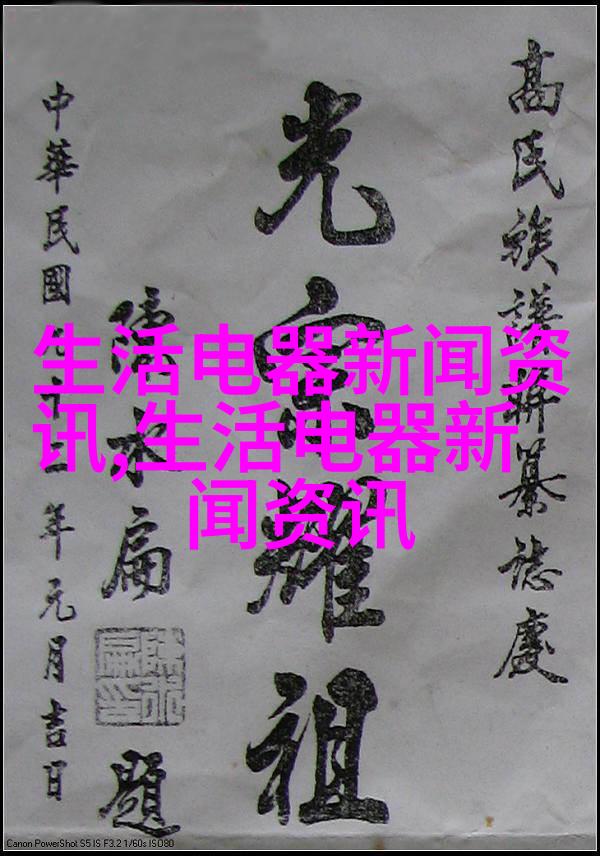 高氏族譜纂誌慶
光宗耀祖
陳水扁題
中華民國年元月吉日
生活电器新闻资
讯,生活电器新
闻资讯
Canon PowerShot S5 IS F3.2 1/60s ISO80